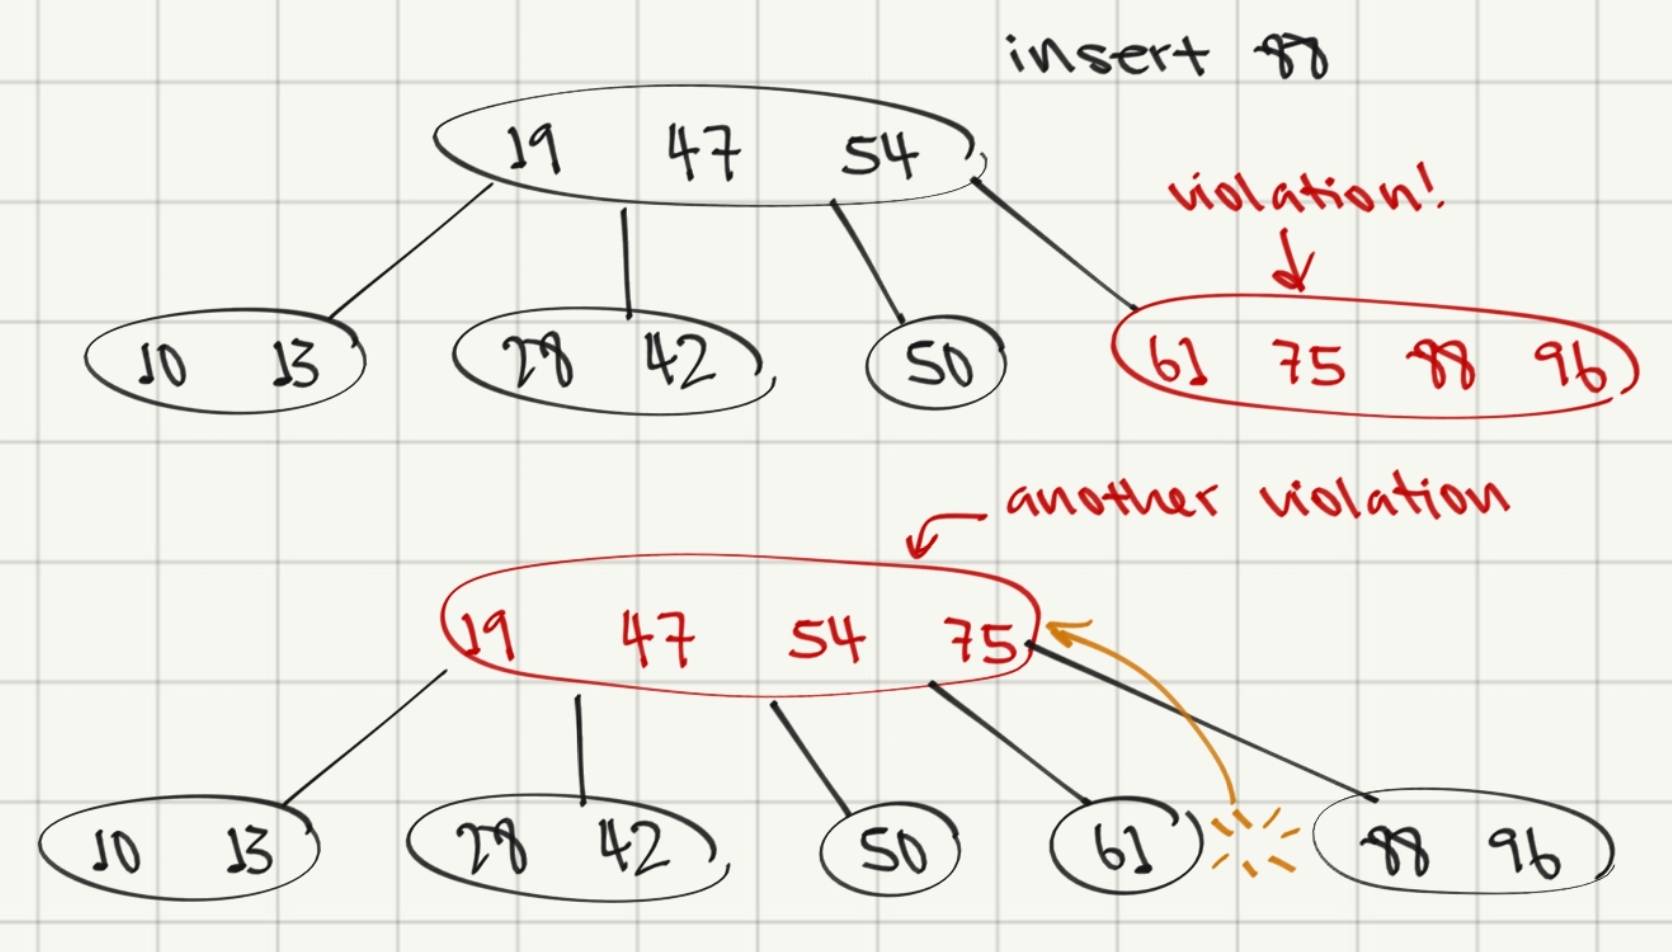 insert 88
19 47 54
violation!
10 13 28 42 50 61 75 88 96
another violation
19 47 54 75
10 13 28 42 50 61 88 96